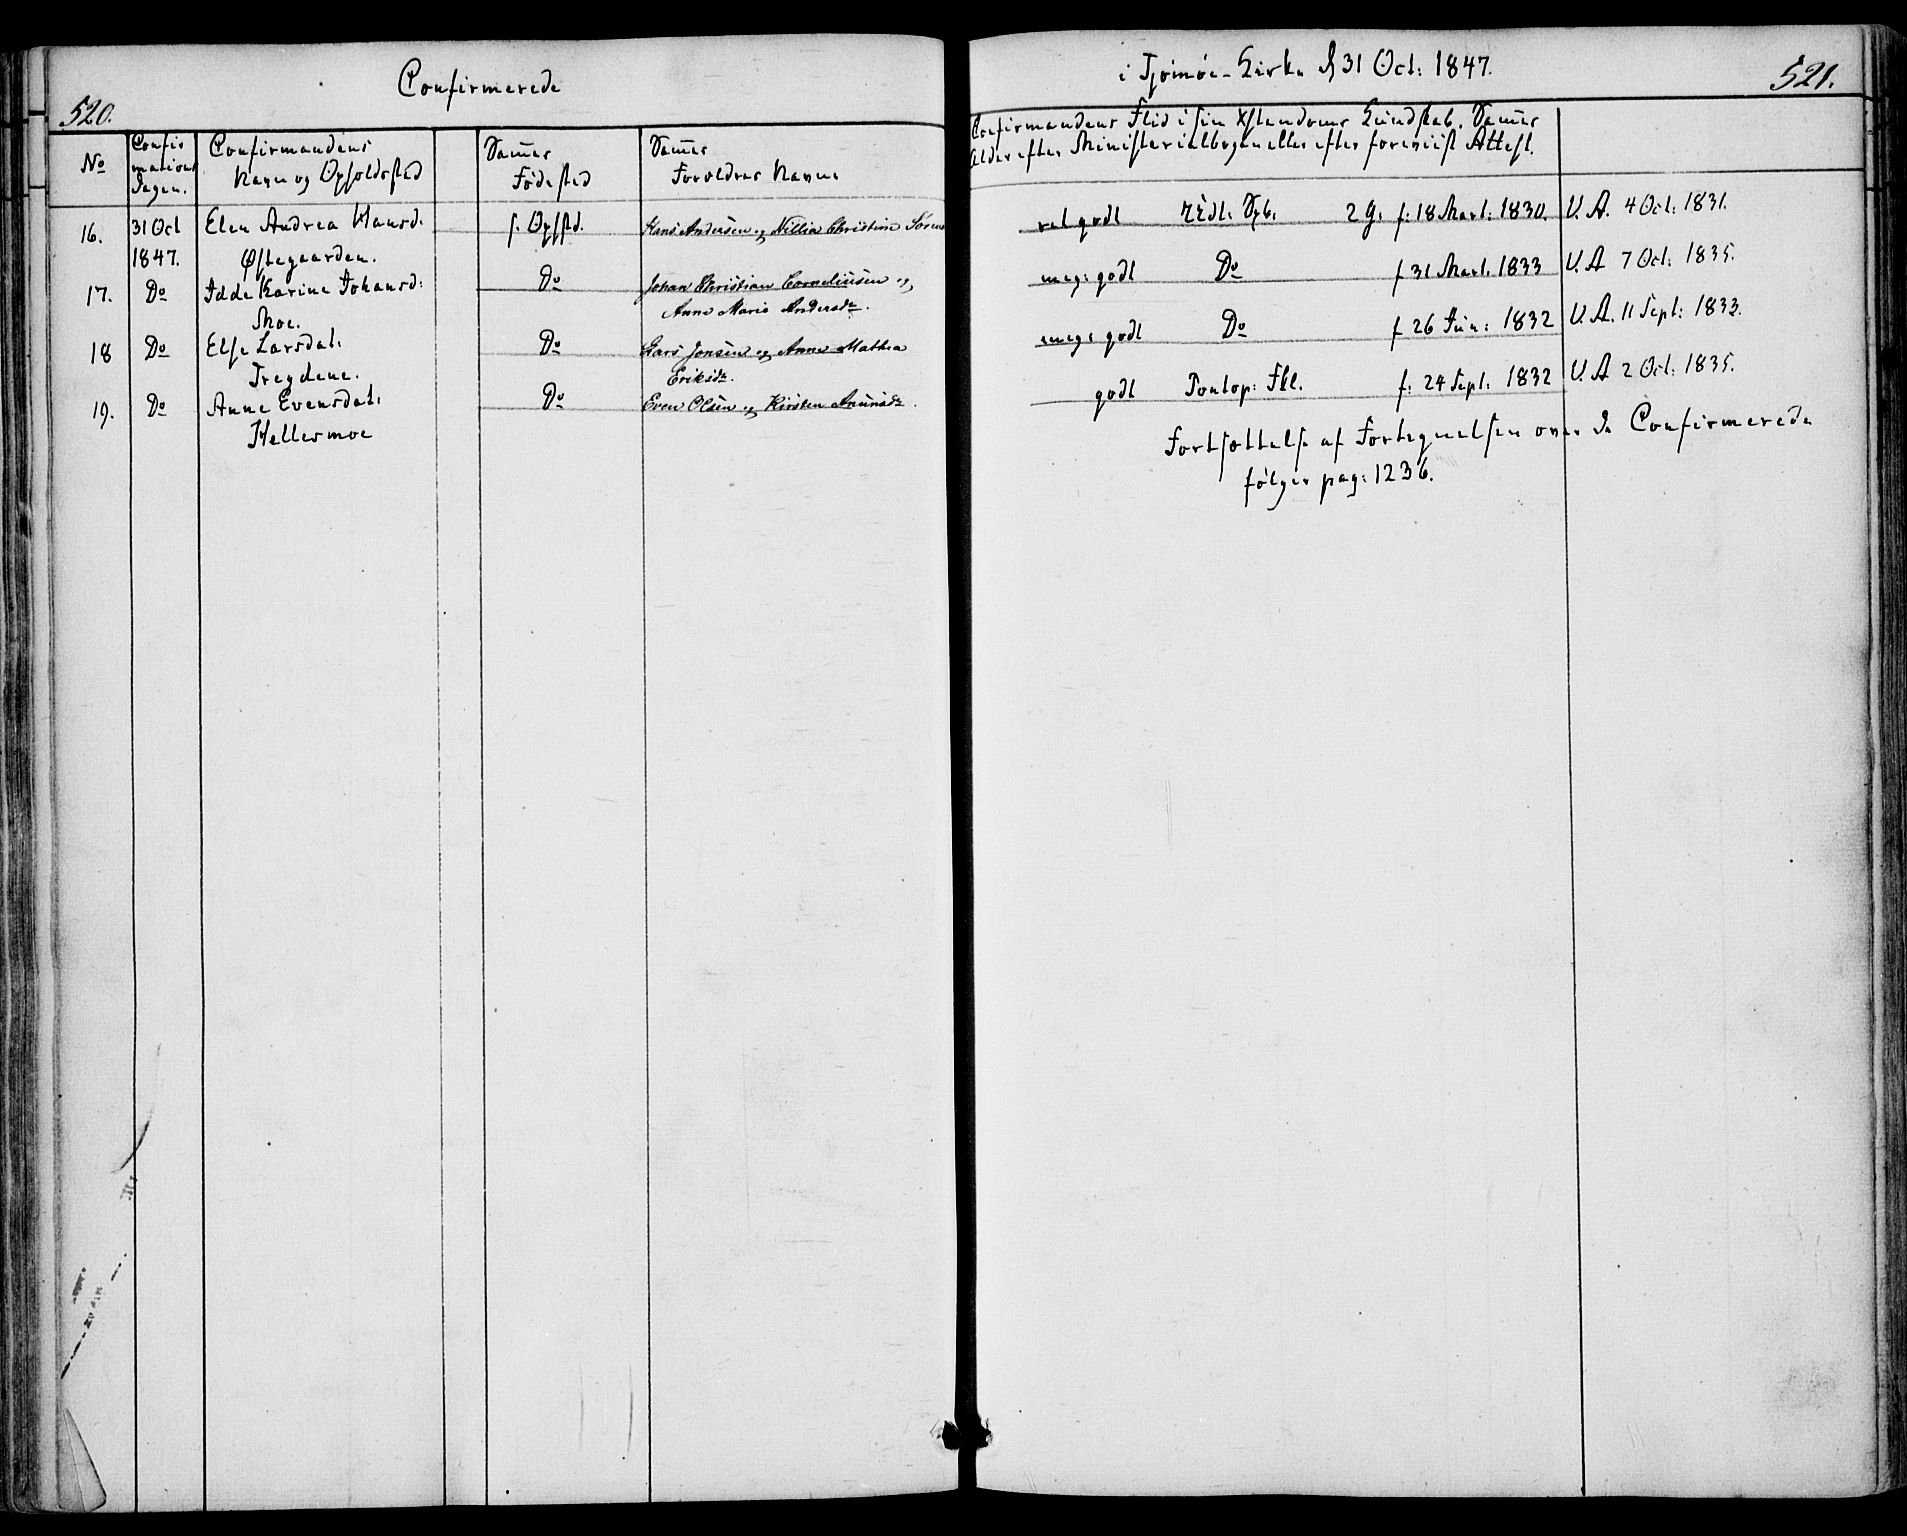 Confirmerede
520.
No
Confir
mations
Dagen.
Confirmandens
Navn og Opholdssted
Sammes
Fødested
Sammes
Forældres Navne
16.
31 Oct
1847.
Elen Andrea Hansd:
Østegaarden.
s. Opsted.
Hans Andersen og Nillia Christine Sørens
17.
Do
Idde Karine Johansd:
Moe.
Do
Johan Christian Corneliusen og
Anne Marie Andersdr.
18
Do
Else Larsdat:
Tregdene.
Do
Lars Jonsen og Anne Mathea
Eriksdr.
19.
Do
Anne Evensdat:
Hellesmoe
Do
Even Olsen og Kirsten Amunddr.
i Tjømøe-Kirke d 31 Oct: 1847.
521.
Confirmandens Flid i sin Xstendoms Kundskab. Sammes
Alder efter Ministerialbogen eller efter foreviist Attest.
vel godt Sp6. 2 G. f: 18 Mart: 1830. V. A. 4 Oct: 1831.
meg: godt Do f 31 Mart. 1833 V. A 7 Oct: 1835.
meg: godt Do f 26 Jun: 1832 V. A. 11 Sept: 1833.
godt Pontop: Fkl. f: 24 Sept: 1832 V. A 2 Oct: 1835.
Fortsættelse af Fortegnelsen over de Confirmerede
følger pag: 1236.